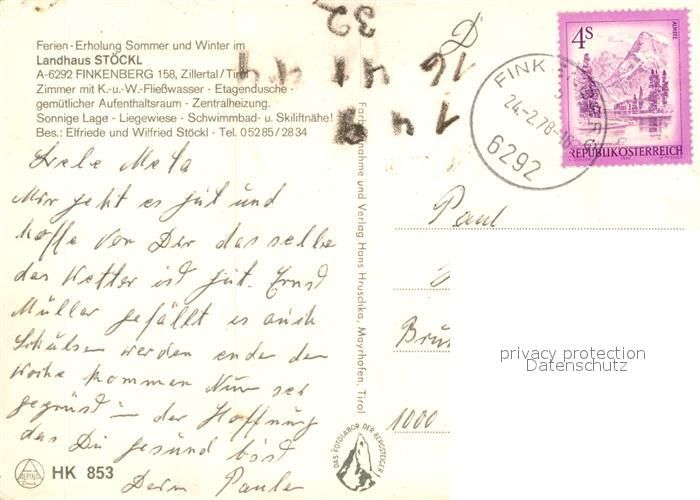 Ferien-Erholung Sommer und Winter im
Landhaus STÖCKL
A-6292 FINKENBERG 158, Zillertal/Tirol
Zimmer mit K.-u.-W.-Fließwasser - Etagendusche -
gemütlicher Aufenthaltsraum - Zentralheizung.
Sonnige Lage - Liegewiese - Schwimmbad- u. Skiliftnähe!
Bes.: Elfriede und Wilfried Stöckl - Tel. 05285/2834
Liebe Meta
Mir geht es gut und
hoffe von Dir das selbe
das Wetter ist gut. Ernst
Müller gefällt es auch
werden ende der
Woche kommen Nun sei
gegrüst in der Hoffnung
das Du gesund bist
Deine Paula
ALPINA
HK 853
Farbaufnahme und Verlag Hans Hruschka, Mayrhofen, Tirol
DAS FOTOLABOR DER BERGSTEIGER
32
FINK
24.-2.78-18
6292
4S
ALMSEE
REPUBLIK ÖSTERREICH
Paul
Brü
1000
privacy protection
Datenschutz